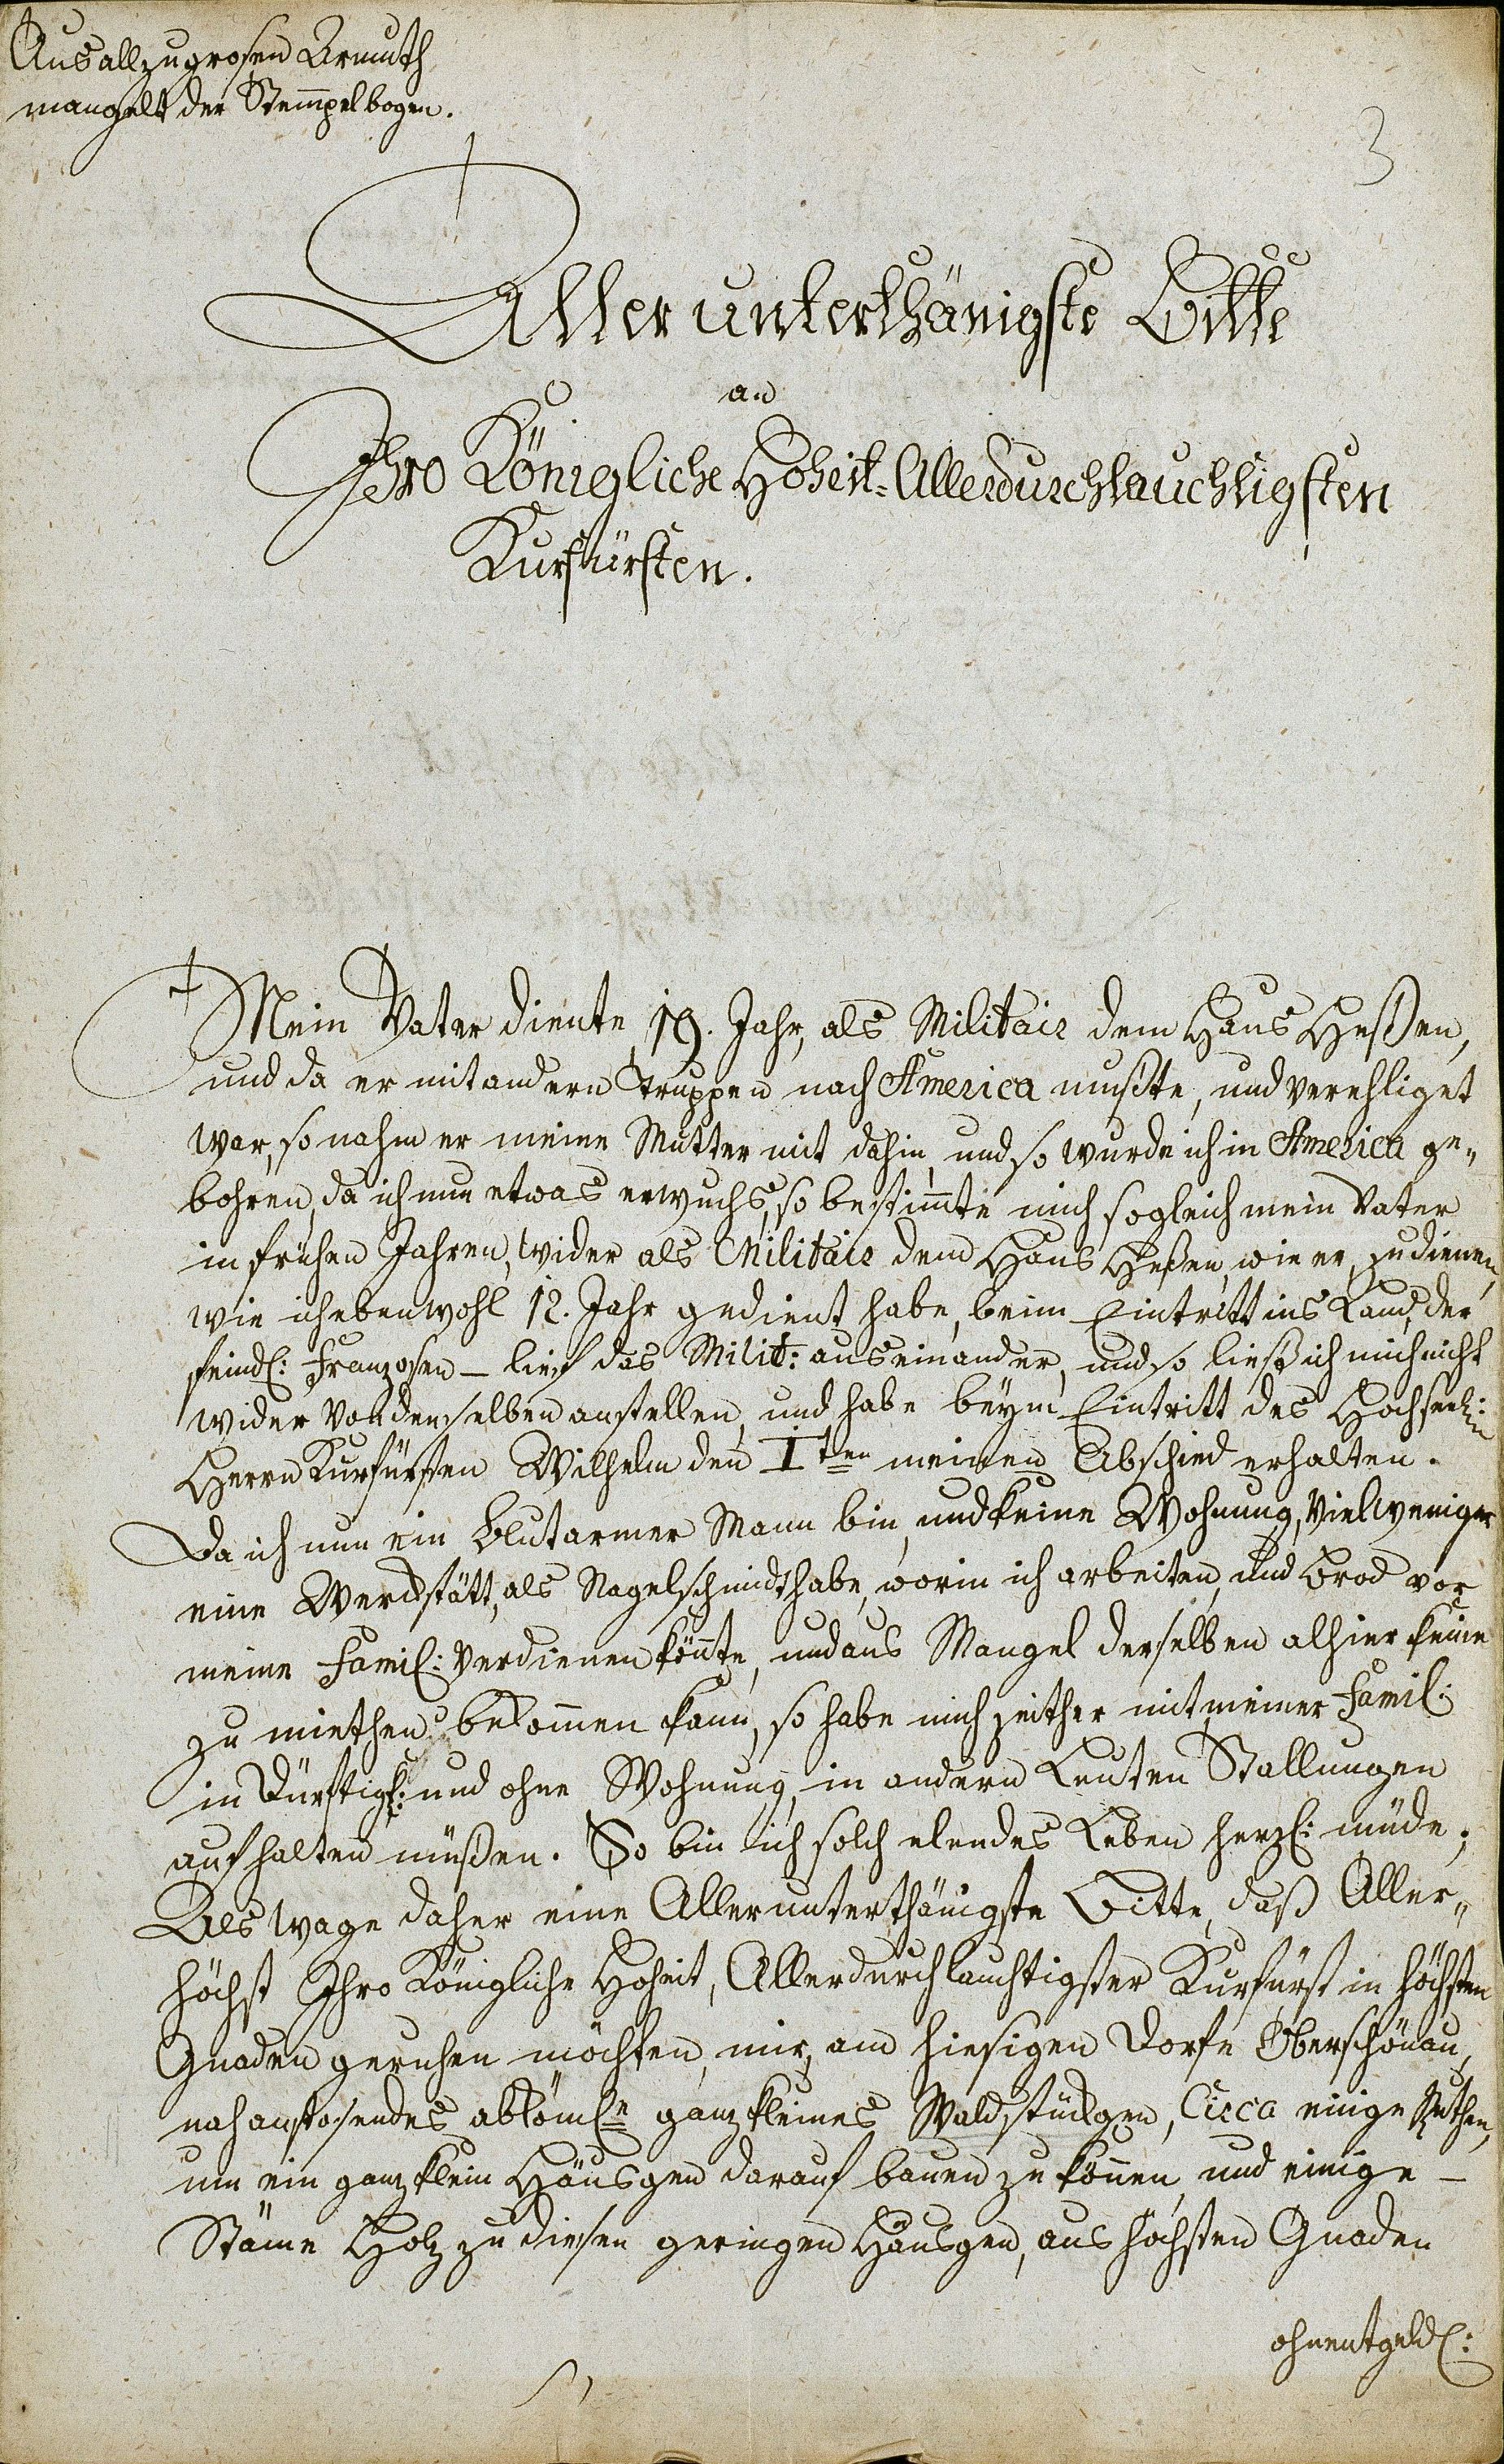 Aus allzugrosen Armuth
mangelt der Stempelbogen.
3
Aller unterthänigste Bitte
an
Ihro Königliche Hoheit-Allerdurchlauchtigsten
Kurfürsten.
Mein Vater diente 19. Jahr, als Militair dem Haus Heßen,
und da er mit andern Truppen nach America mußte, und verehliget
war, so nahm er meine Mutter mit dahin, und so wurde ich in America ge„
bohren, da ich nun etwas erwuchs, so bestim̄te mich sogleich mein Vater
in frühen Jahren, wider als Militair dem Haus Heßen, wie er, zu dienen,
wie ich ebenwohl 12. Jahr gedient habe, beim Eintritt ins Land, der
feindl: Franzosen – lief das Milit: aus einander, und so ließ ich mich nicht
wider von denselben anstellen, und habe beym Eintritt des Hochseel:
Herrn Kurfürsten Wilhelm den Iten meinen Abschied erhalten.
Da ich nun ein blutarmer Mann bin, und keine Wohnung, vielweniger
eine Werckstätt, als Nagelschmidt habe, worin ich arbeiten, und Brod vor
meine Famil: verdienen kön̄te, und aus Mangel derselben alhier keine
zu miethen bekom̄en kann, so habe mich zeither mit meiner Famil:
in Dürftigk: und ohne Wohnung, in andern Leuten Stallungen
aufhalten müßen. So bin ich solch elendes Leben herzl: müde;
Als wage daher eine Allerunterthänigste Bitte, daß Aller„
höchst Ihro Königliche Hoheit, Allerdurchlauchtigster Kurfürst in höchsten
Gnaden geruhen möchten, mir, am hiesigen Dorfe Oberschönau,
nah anstosendes abkömln ganz kleines Waldstückgen, Circa einige Ruthen,
um ein ganz klein Häusgen darauf bauen zu kön̄en, und einige –
Stäm̄e Holz zu diesen geringen Häusgen, aus höchsten Gnaden
ohnentgeldl: